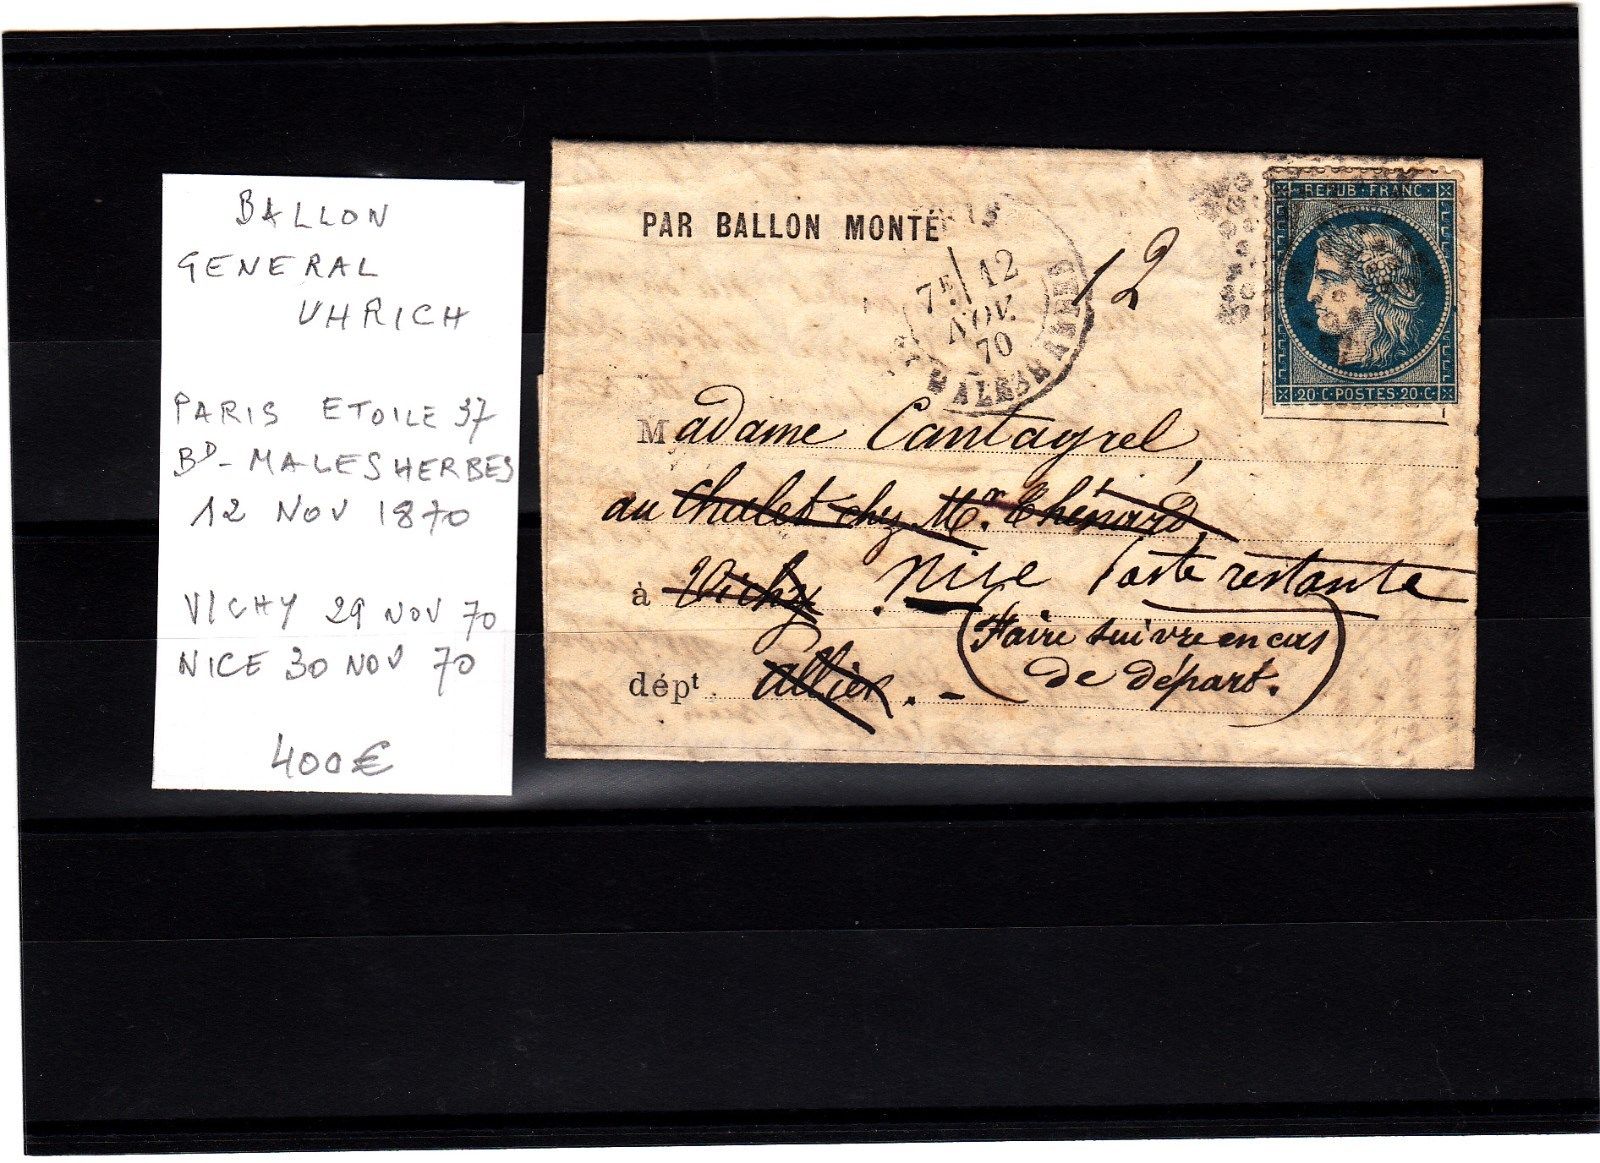 BALLON
GENERAL
UHRICH
PARIS ETOILE 37
BD - MALESHERBES
12 NOV 1870
VICHY 29 NOV 70
NICE 30 NOV 70
400€
PAR BALLON MONTÉ
7E 12
NOV.
70
MALESHERBES
12
REPUB·FRANC
20·C·POSTES·20·C
Madame Cantagrel,
au Chalet chez Mr. Thénard
à Vichy. Nice Poste restante
(Faire suivre en cas
de départ.)
dépt. Allier. -